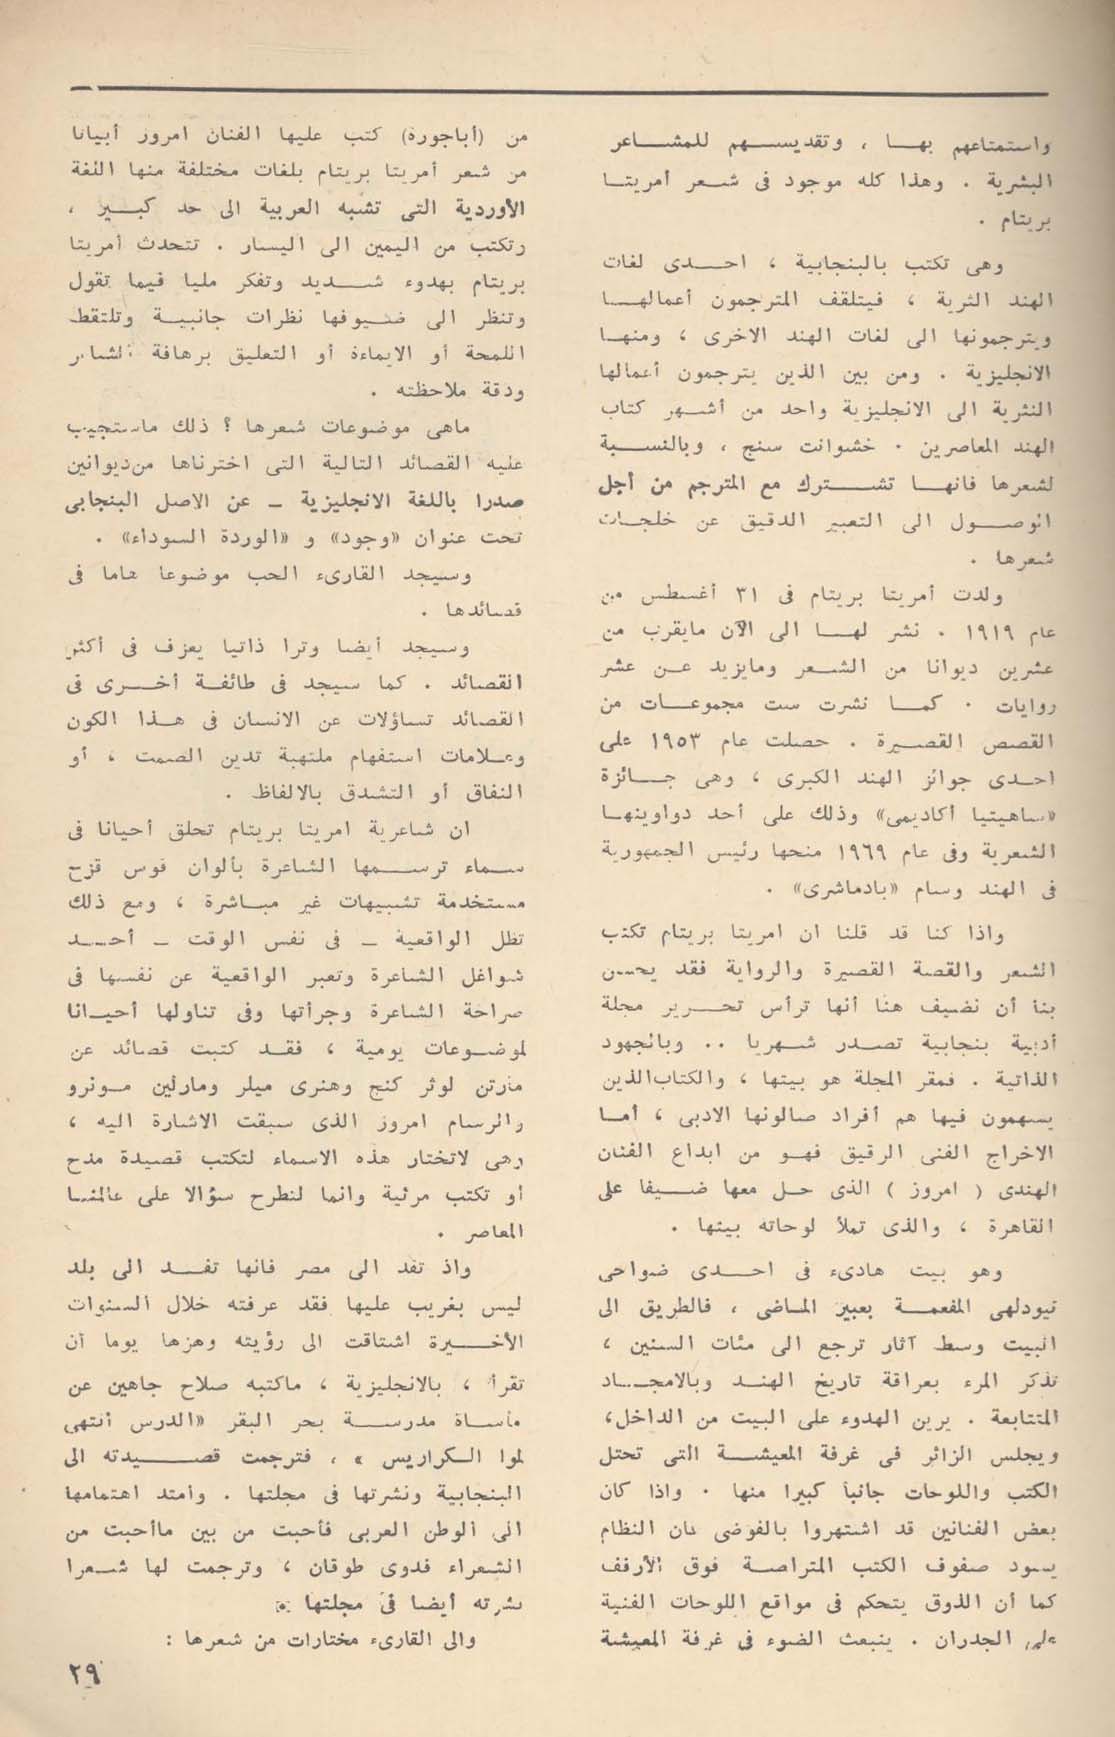 واستمتاعهم بها ، وتقديسهم للمشاعر
البشرية . وهذا كله موجود فى شعر أمريتا
بريتام .
وهى تكتب بالبنجابية ، احدى لغات
الهند الثرية ، فيتلقف المترجمون أعمالها
ويترجمونها الى لغات الهند الاخرى ، ومنها
الانجليزية . ومن بين الذين يترجمون أعمالها
النثرية الى الانجليزية واحد من أشهر كتاب
الهند المعاصرين . خشوانت سنج ، وبالنسبة
لشعرها فانها تشترك مع المترجم من أجل
الوصول الى التعبير الدقيق عن خلجات
شعرها .
ولدت أمريتا بريتام فى ٣١ أغسطس من
عام ١٩١٩ . نشر لها الى الآن مايقرب من
عشرين ديوانا من الشعر ومايزيد عن عشر
روايات . كما نشرت ست مجموعات من
القصص القصيرة . حصلت عام ١٩٥٣ على
احدى جوائز الهند الكبرى ، وهى جائزة
«ساهيتيا أكاديمى» وذلك على أحد دواوينها
الشعرية وفى عام ١٩٦٩ منحها رئيس الجمهورية
فى الهند وسام «بادماشرى» .
واذا كنا قد قلنا ان امريتا بريتام تكتب
الشعر والقصة القصيرة والرواية فقد يحسن
بنا أن نضيف هنا أنها ترأس تحرير مجلة
أدبية بنجابية تصدر شهريا .. وبالجهود
الذاتية . فمقر المجلة هو بيتها ، والكتاب الذين
يسهمون فيها هم أفراد صالونها الادبى ، أما
الاخراج الفنى الرقيق فهو من ابداع الفنان
الهندى ( امروز ) الذى حل معها ضيفا على
القاهرة ، والذى تملأ لوحاته بيتها .
وهو بيت هادىء فى احدى ضواحى
نيودلهى المفعمة بعبير الماضى ، فالطريق الى
البيت وسط آثار ترجع الى مئات السنين ،
تذكر المرء بعراقة تاريخ الهند وبالامجاد
المتتابعة . يرين الهدوء على البيت من الداخل،
ويجلس الزائر فى غرفة المعيشة التى تحتل
الكتب واللوحات جانبا كبيرا منها . واذا كان
بعض الفنانين قد اشتهروا بالفوضى فان النظام
يسود صفوف الكتب المتراصة فوق الأرفف
كما أن الذوق يتحكم فى مواقع اللوحات الفنية
على الجدران . ينبعث الضوء فى غرفة المعيشة
من (أباجورة) كتب عليها الفنان امروز أبياتا
من شعر أمريتا بريتام بلغات مختلفة منها اللغة
الأوردية التى تشبه العربية الى حد كبير ،
وتكتب من اليمين الى اليسار . تتحدث أمريتا
بريتام بهدوء شديد وتفكر مليا فيما تقول
وتنظر الى ضيوفها نظرات جانبية وتلتقط
اللمحة أو الايماءة أو التعليق برهافة الشاعر
ودقة ملاحظته .
ماهى موضوعات شعرها ؟ ذلك ماستجيب
عليه القصائد التالية التى اخترناها من ديوانين
صدرا باللغة الانجليزية – عن الاصل البنجابى
تحت عنوان «وجود» و «الوردة السوداء» .
وسيجد القارىء الحب موضوعا هاما فى
قصائدها .
وسيجد أيضا وترا ذاتيا يعزف فى أكثر
القصائد . كما سيجد فى طائفة أخرى فى
القصائد تساؤلات عن الانسان فى هذا الكون
وعلامات استفهام ملتهبة تدين الصمت ، أو
النفاق أو التشدق بالالفاظ .
ان شاعرية امريتا بريتام تحلق أحيانا فى
سماء ترسمها الشاعرة بألوان قوس قزح
مستخدمة تشبيهات غير مباشرة ، ومع ذلك
تظل الواقعية – فى نفس الوقت – أحد
شواغل الشاعرة وتعبر الواقعية عن نفسها فى
صراحة الشاعرة وجرأتها وفى تناولها أحيانا
لموضوعات يومية ، فقد كتبت قصائد عن
مارتن لوثر كنج وهنرى ميلر ومارلين مونرو
والرسام امروز الذى سبقت الاشارة اليه ،
وهى لاتختار هذه الاسماء لتكتب قصيدة مدح
أو تكتب مرثية وانما لتطرح سؤالا على عالمنا
المعاصر .
واذ تفد الى مصر فانها تفد الى بلد
ليس بغريب عليها فقد عرفته خلال السنوات
الأخيرة اشتاقت الى رؤيته وهزها يوما أن
تقرأ ، بالانجليزية ، ماكتبه صلاح جاهين عن
مأساة مدرسة بحر البقر «الدرس انتهى
لموا الكراريس » ، فترجمت قصيدته الى
البنجابية ونشرتها فى مجلتها . وامتد اهتمامها
الى الوطن العربى فأحبت من بين ماأحبت من
الشعراء فدوى طوقان ، وترجمت لها شعرا
نشرته أيضا فى مجلتها
والى القارىء مختارات من شعرها :
٢٩